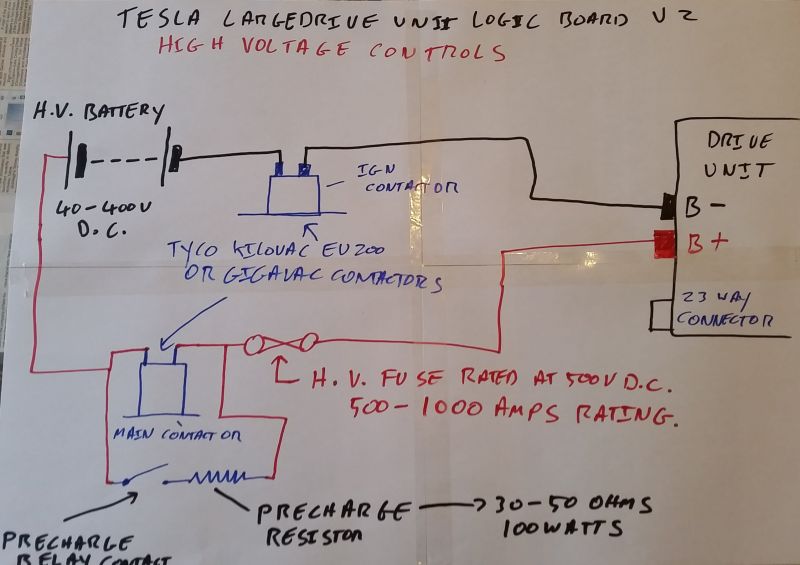 TESLA LARGEDRIVE UNIT LOGIC BOARD V2
HIGH VOLTAGE CONTROLS
H.V. BATTERY
40-400V
D.C.
IGN
CONTACTOR
DRIVE
UNIT
B -
B +
23 WAY
CONNECTOR
TYCO KILOVAC EV200
OR GIGAVAC CONTACTORS
H.V. FUSE RATED AT 500V D.C.
500-1000 AMPS RATING.
MAIN CONTACTOR
PRECHARGE
RELAY CONTACT
PRECHARGE
RESISTOR
30-50 OHMS
100WATTS